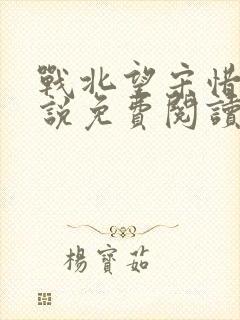 戰北望宋惜
說免費閱讀
楊寶茹